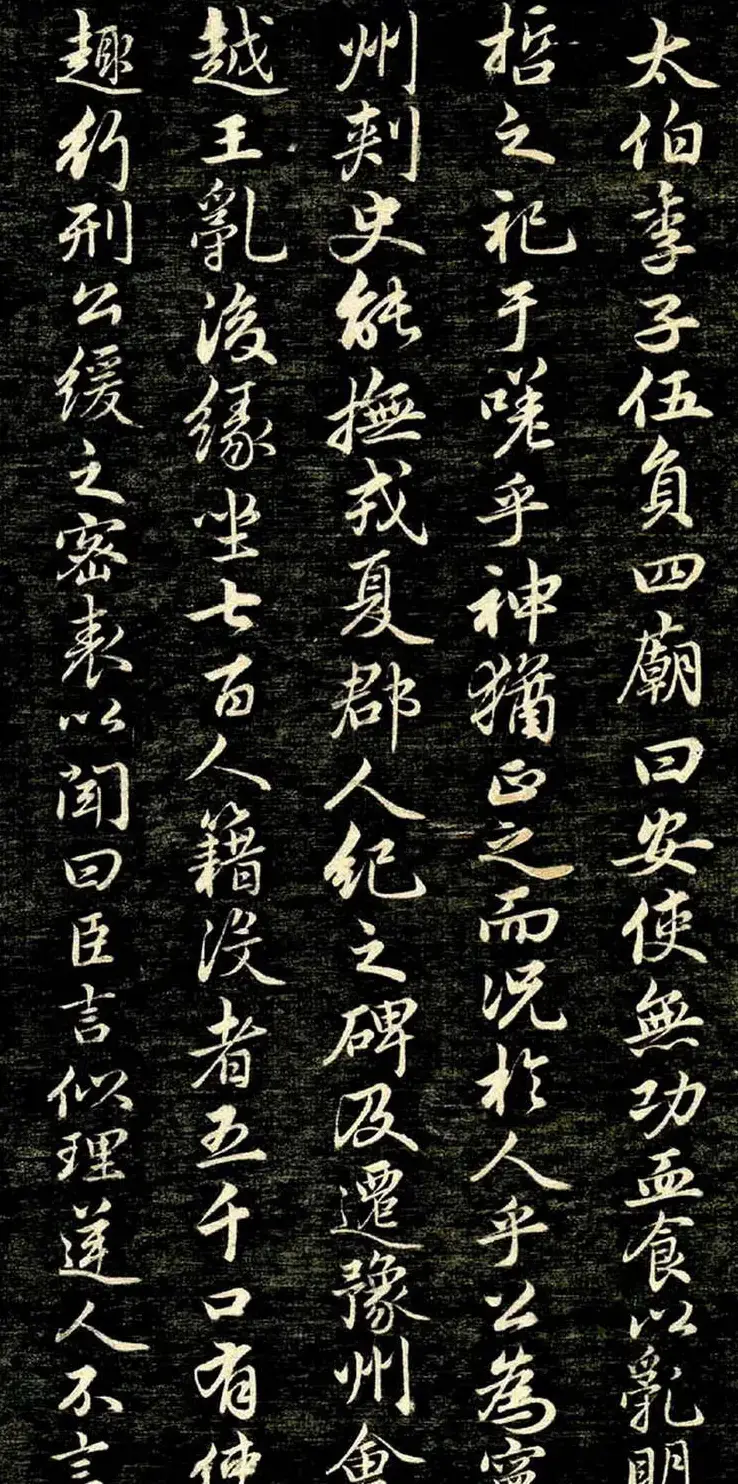 太伯季子伍員四廟曰安使無功血食以亂明
哲之祀于嗟乎神猶正之而況於人乎公為寧
州刺史能撫戎夏郡人紀之碑及遷豫州會
越王亂後緣坐七百人籍没者五千口有使
趣行刑公緩之密表以聞曰臣言似理逆人不言